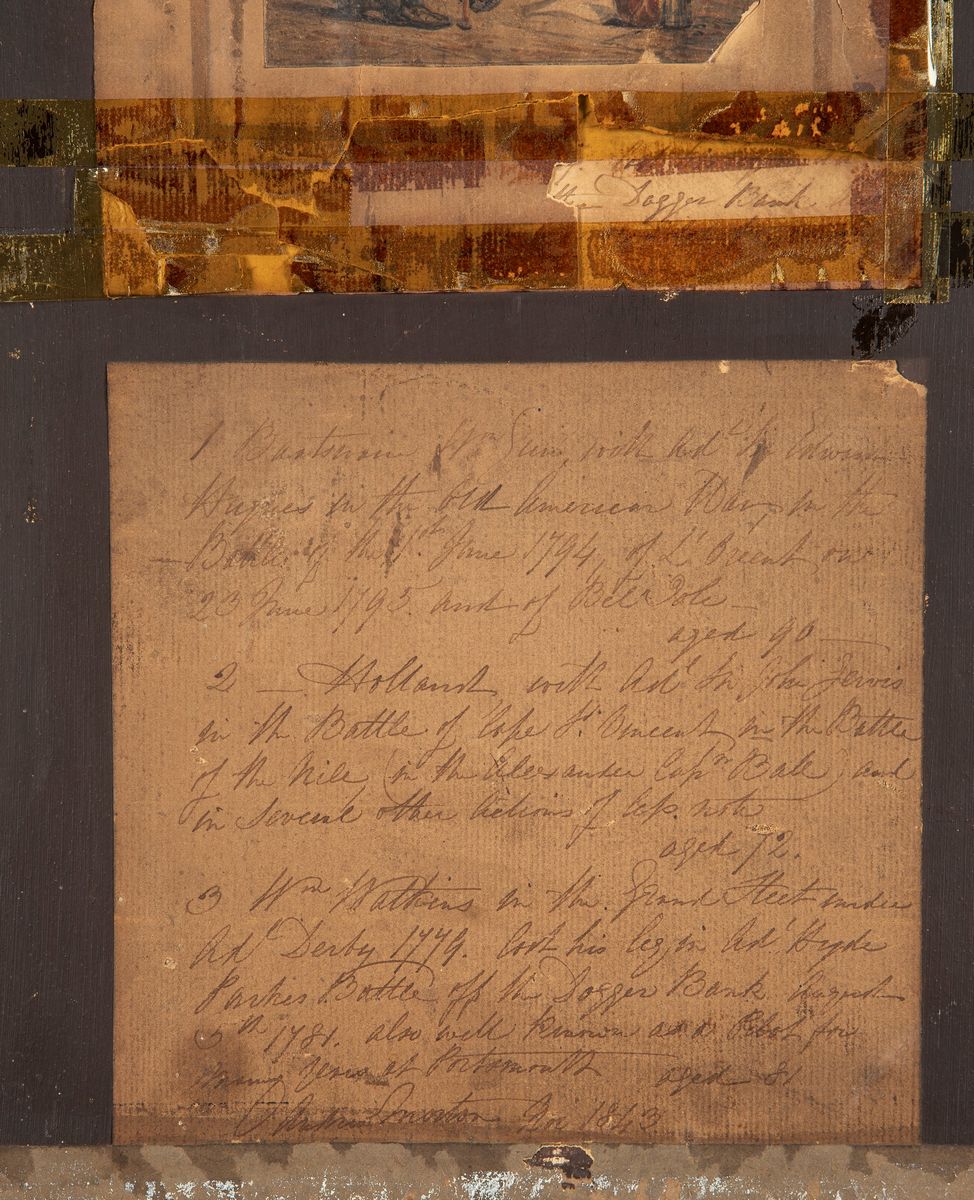 the Dogger Bank
1 Boatswain Wm Gun, with Adl Sr Edward
Hughes in the Old American War, in the
Battle of the 1st June 1794, of L'Orient on
23 June 1795. and of Bel Isle
aged 90
2 — Holland, with Adl Sr John Jervis
in the Battle of Cape St Vincent, in the Battle
of the Nile (in the Alexander Captn Ball) and
in several other Actions of less note
aged 72.
3 Wm Watkins in the Grand Fleet under
Adl Derby 1779. lost his leg in Adl Hyde
Parkers Battle off the Dogger Bank August
5th 1781. also well known as a Pilot for
many years at Portsmouth aged 81
1843